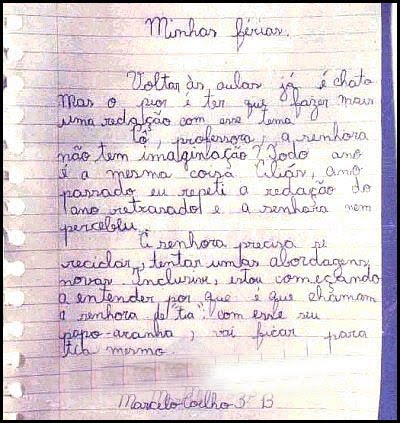 Minhas férias.
Voltar às aulas já é chato
Mas o pior é ter que fazer mais
uma redação com esse tema
Cô, professora, a senhora
não tem imaginação? Todo ano
é a mesma coisa. Aliás, ano
passado eu repeti a redação do
ano retrasado e a senhora nem
percebeu.
A senhora precisa se
reciclar, tentar umas abordagens
novas. Inclusive, estou começando
a entender por que é que chamam
a senhora de "tia": com esse seu
papo-aranha, vai ficar para
tia mesmo.
Marcelo Coelho 3ª B